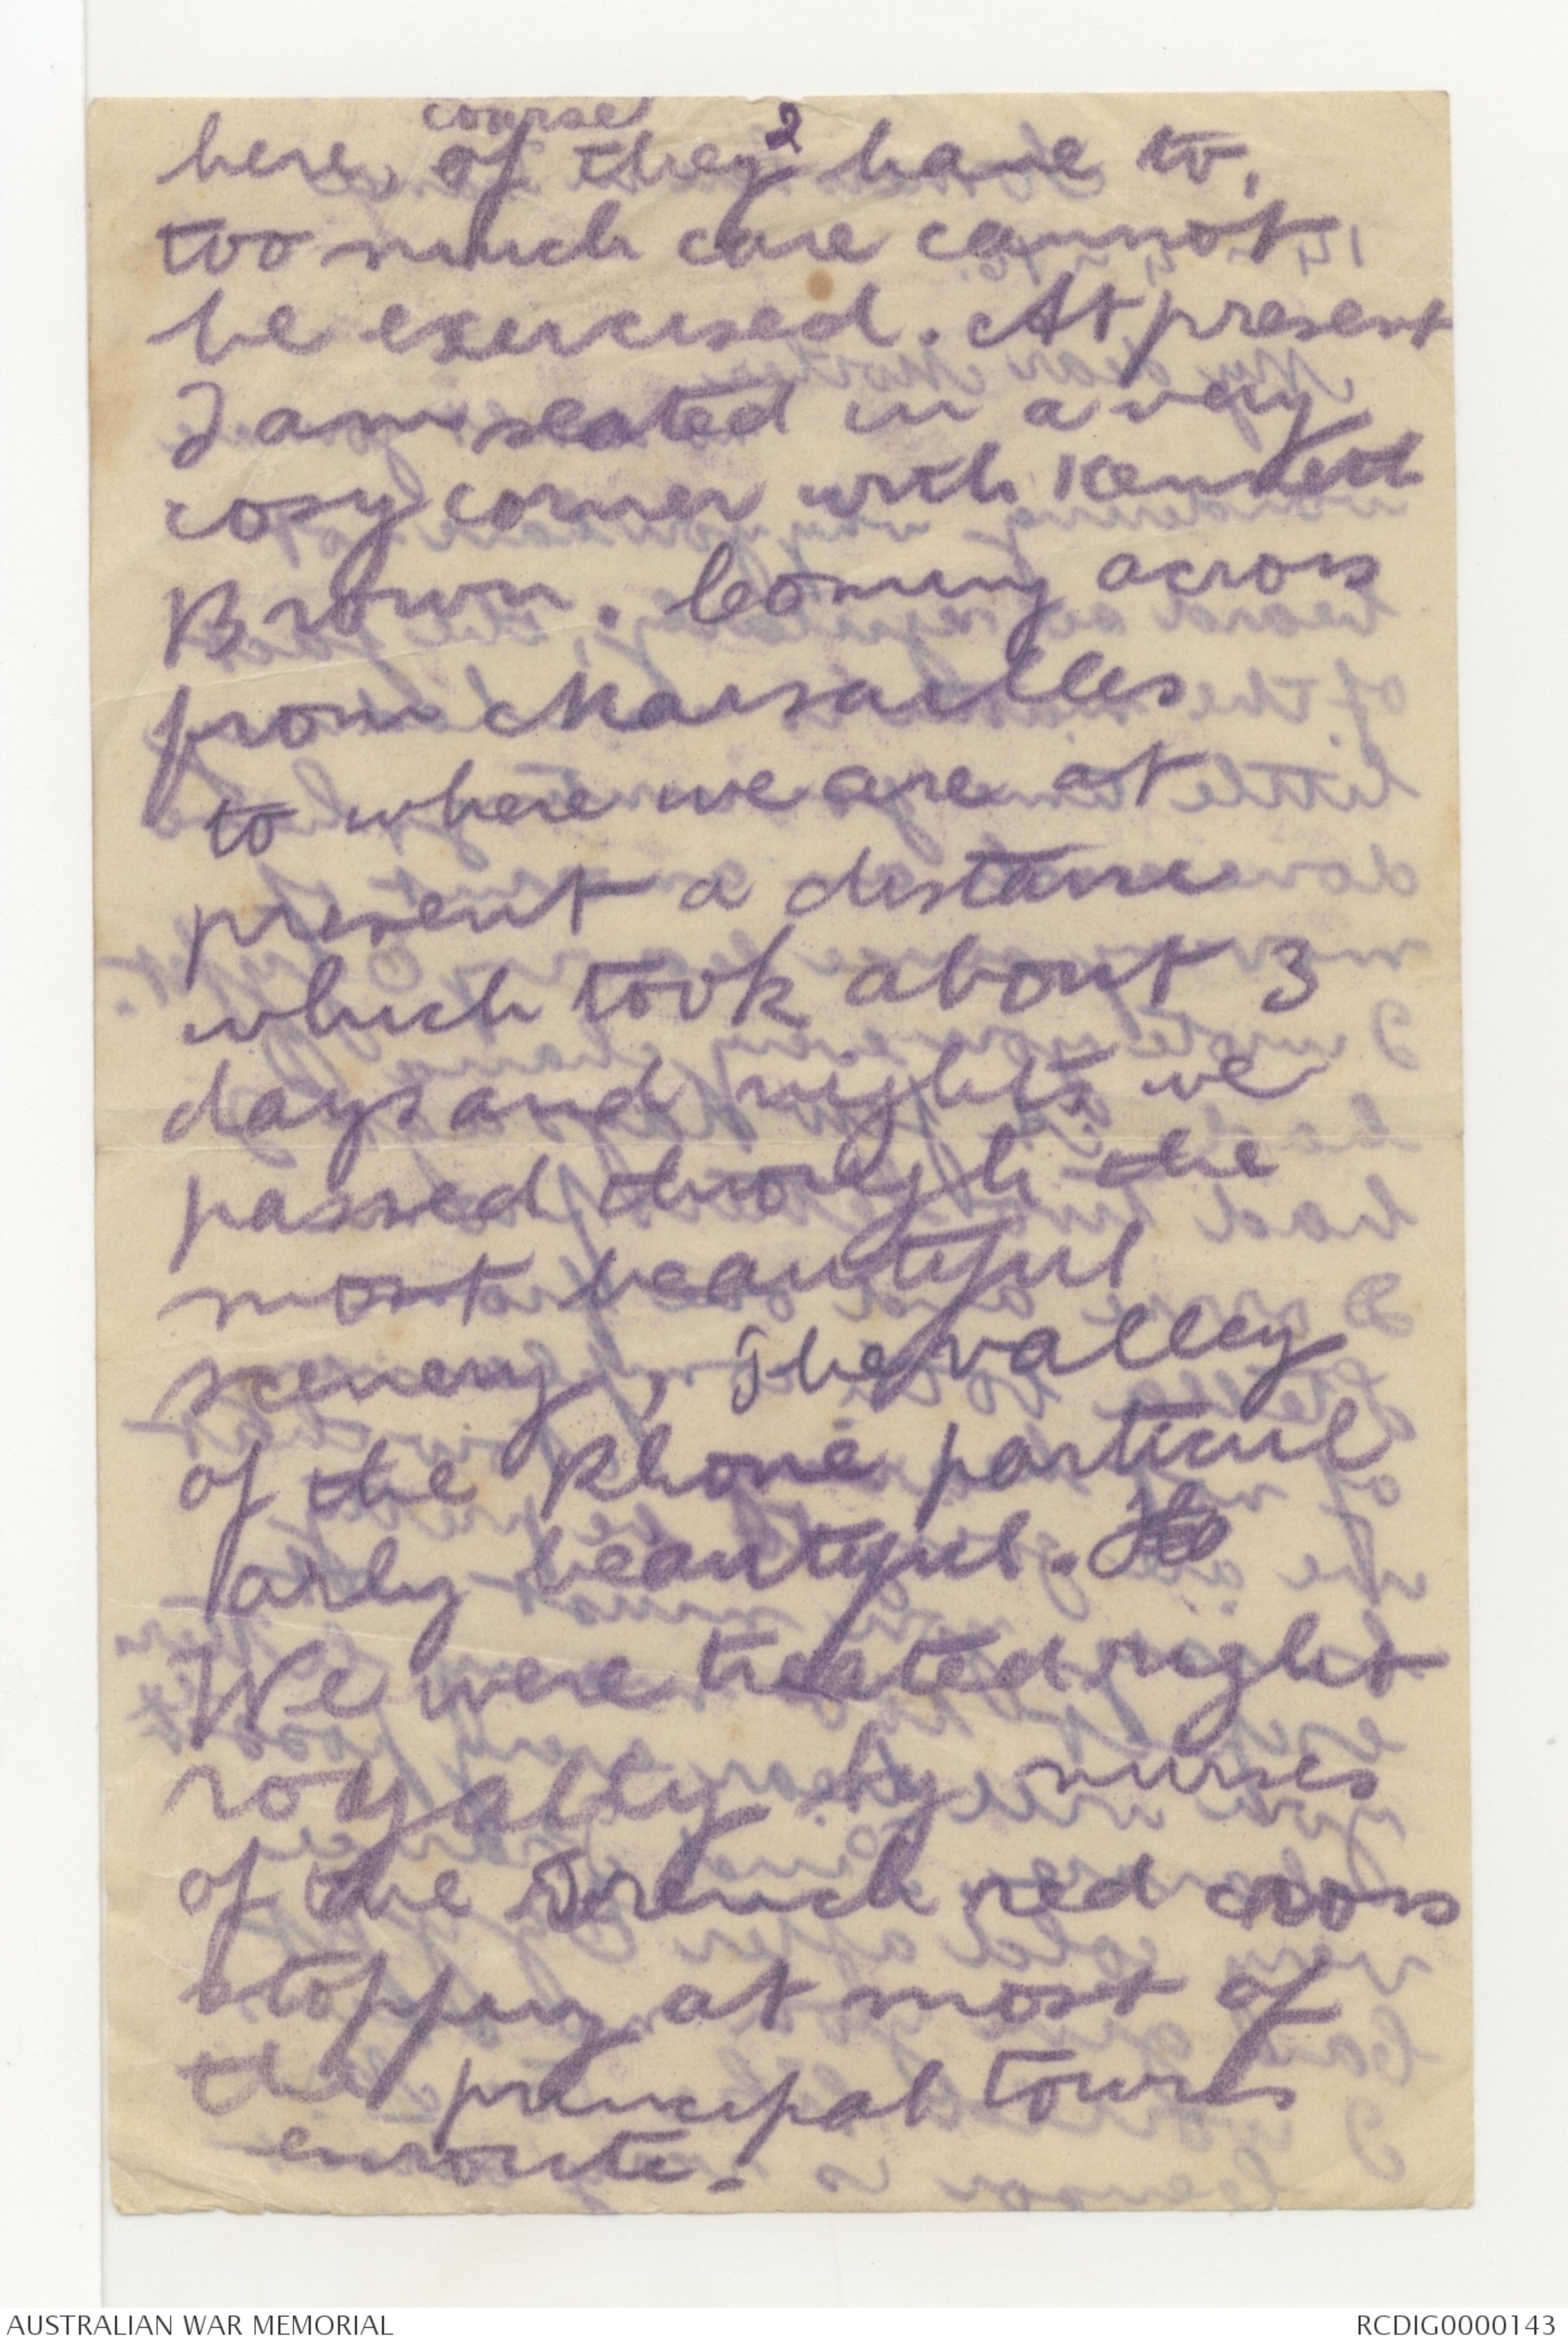 2
course
here, of they have to,
too much care cannot
be exercised. At present
I am seated in a very
cosy corner with Kenneth
Brown. Coming across
from Marsailles
to where we are at
present a distance
which took about 3
days and nights we
passed through the
most beautiful
scenery, The valley
of the Rhone particul
arly beautiful.
We were treated right
royally by nurses
of the French red cross
stopping at most of
the principal towns
enroute.
AUSTRALIAN WAR MEMORIAL
RCDIG0000143